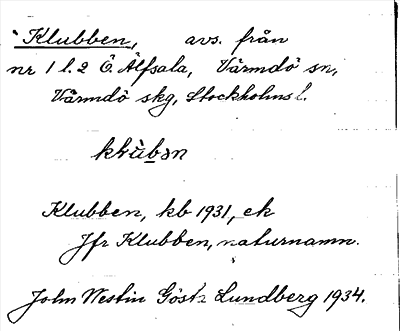 `Klubben, avs. från
nr 1 l. 2 Ö. Älfsala, Värmdö sn,
Värmdö skg, Stockholms l.
Klubben, kb 1931, ek
Jfr Klubben, naturnamn.
John Westin Gösta Lundberg 1934.